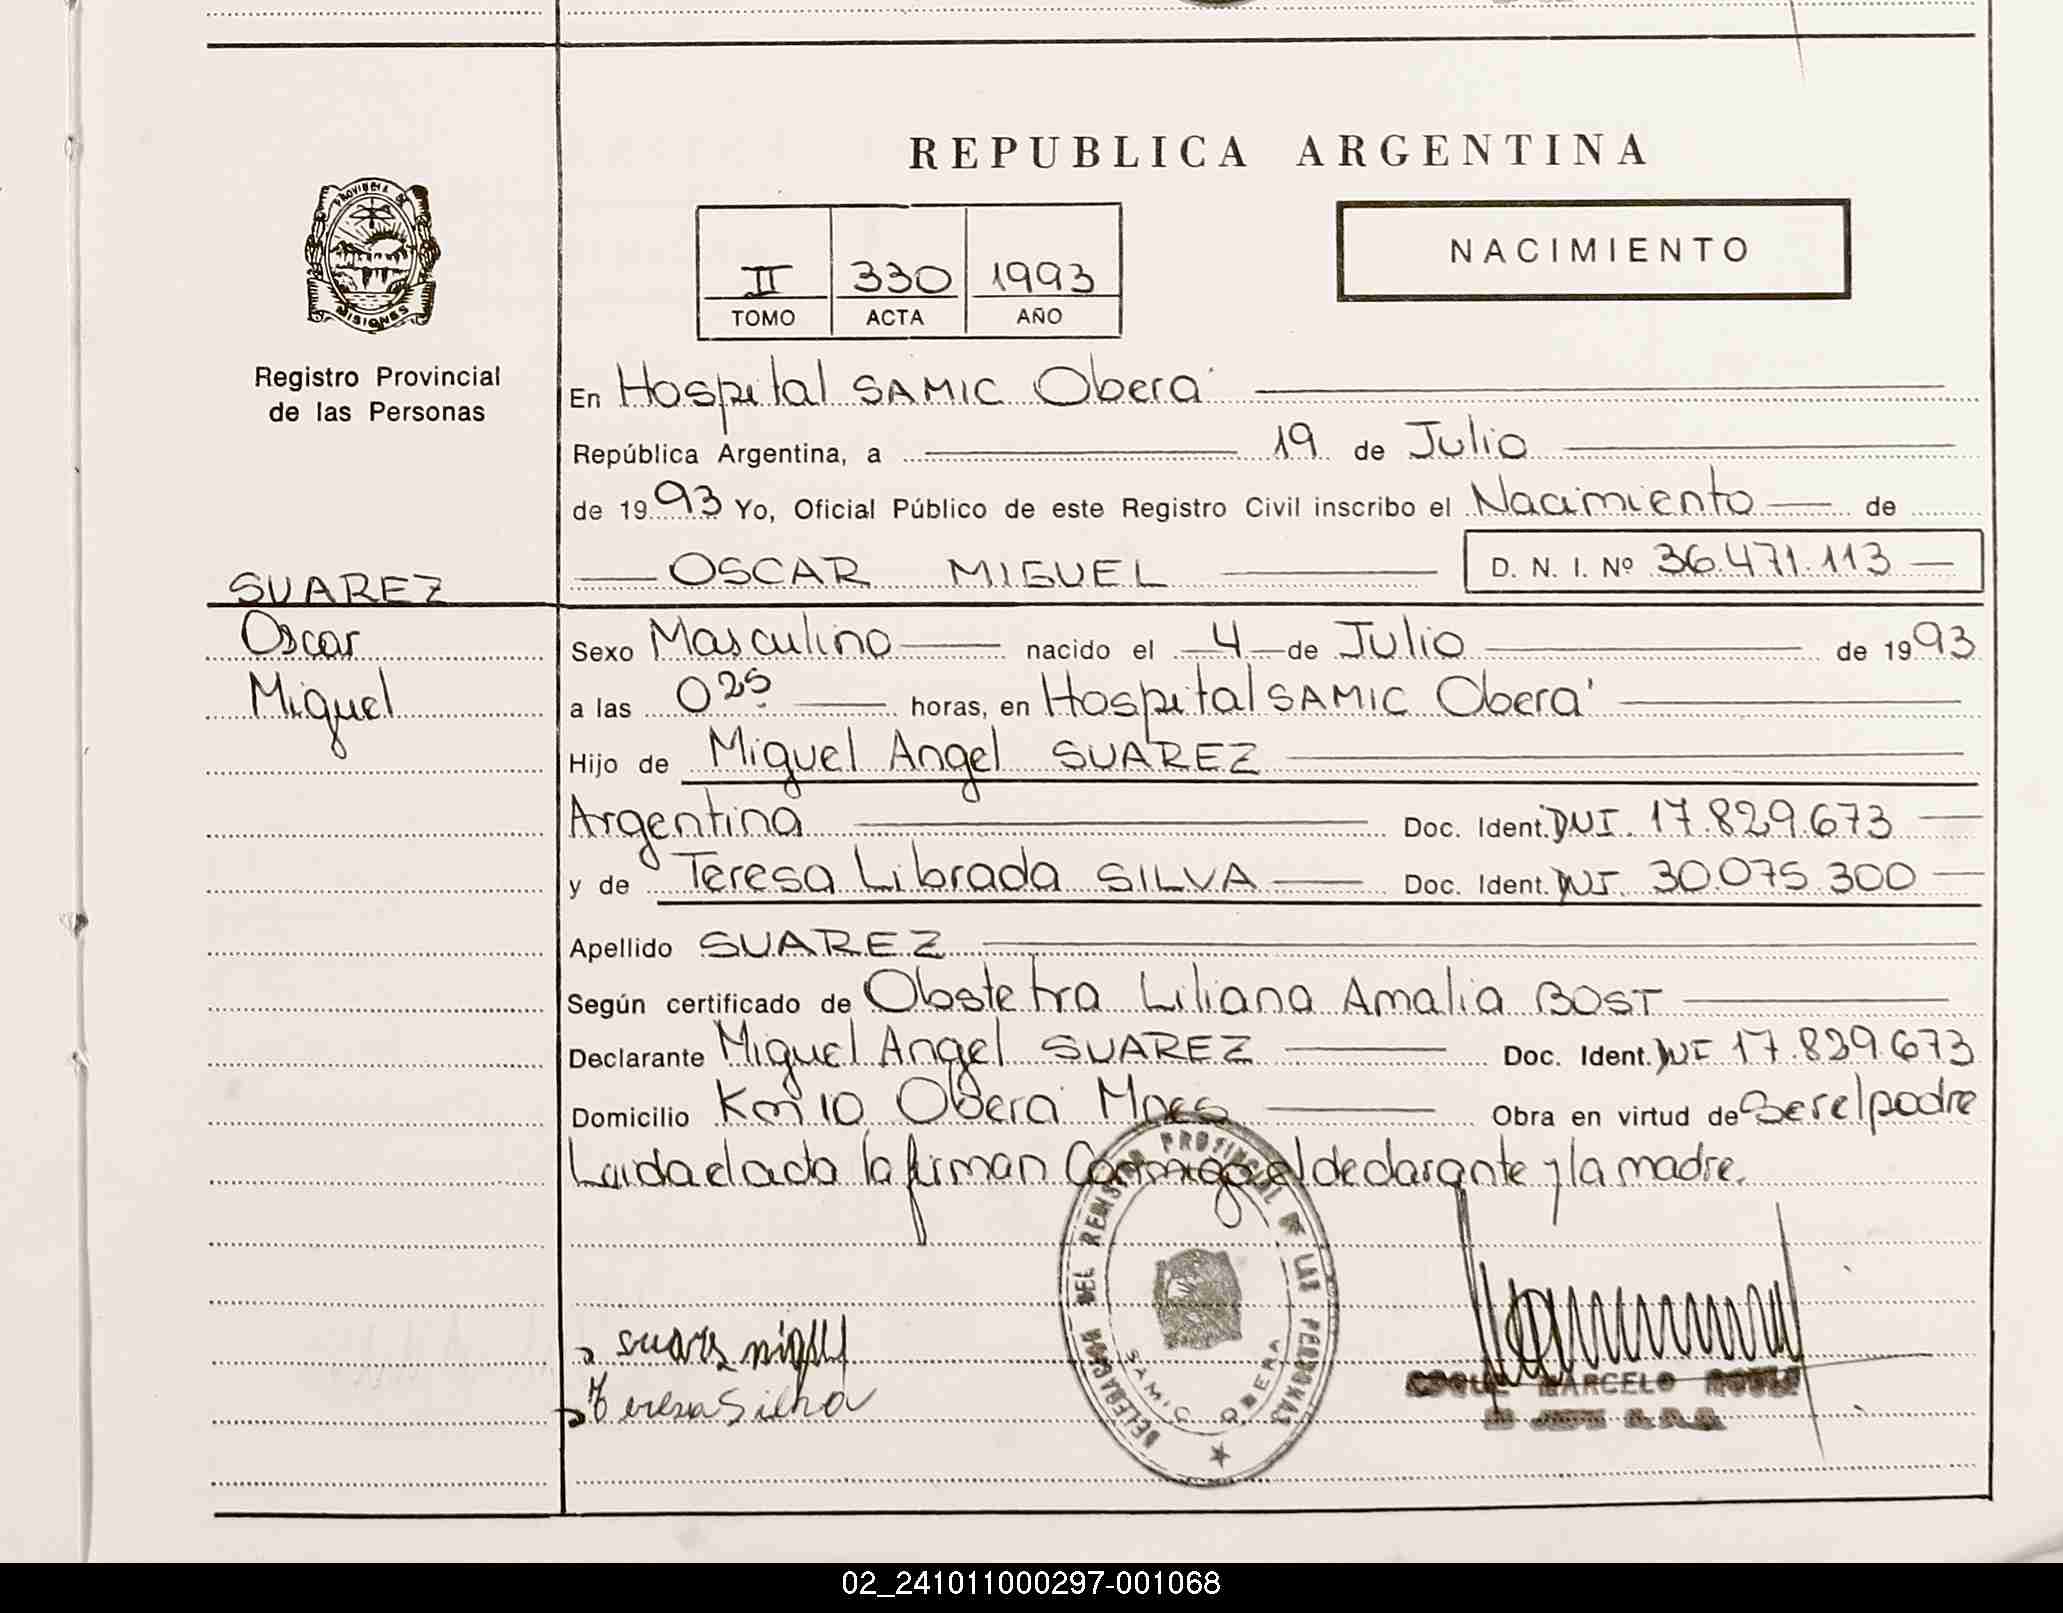 REPUBLICA ARGENTINA
PROVINCIA DE
MISIONES
NACIMIENTO
II 330 1993
TOMO ACTA AÑO
Registro Provincial
de las Personas
En Hospital SAMIC Oberá
República Argentina, a 19 de Julio
de 1993 Yo, Oficial Público de este Registro Civil inscribo el Nacimiento de
OSCAR MIGUEL D. N. I. Nº 36.471.113
SUAREZ
Oscar
Miguel
Sexo Masculino nacido el 4 de Julio de 1993
a las 0 25 horas, en Hospital SAMIC Oberá
Hijo de Miguel Angel SUAREZ
Argentina Doc. Ident. DNI 17.829.673
y de Teresa Librada SILVA Doc. Ident. DNI. 30.075.300
Apellido SUAREZ
Según certificado de Obstetra Liliana Amalia BOST
Declarante Miguel Angel SUAREZ Doc. Ident. DNI 17.829.673
Domicilio Km 10 Oberá Mnes Obra en virtud de Ser el padre
Leida el acta la firman Conmigo el declarante y la madre.
DELEGACION DEL REGISTRO PROVINCIAL DE LAS PERSONAS
SAMIC OBERA
suares miguel
Teresa Silva
MARCELO
02_241011000297-001068